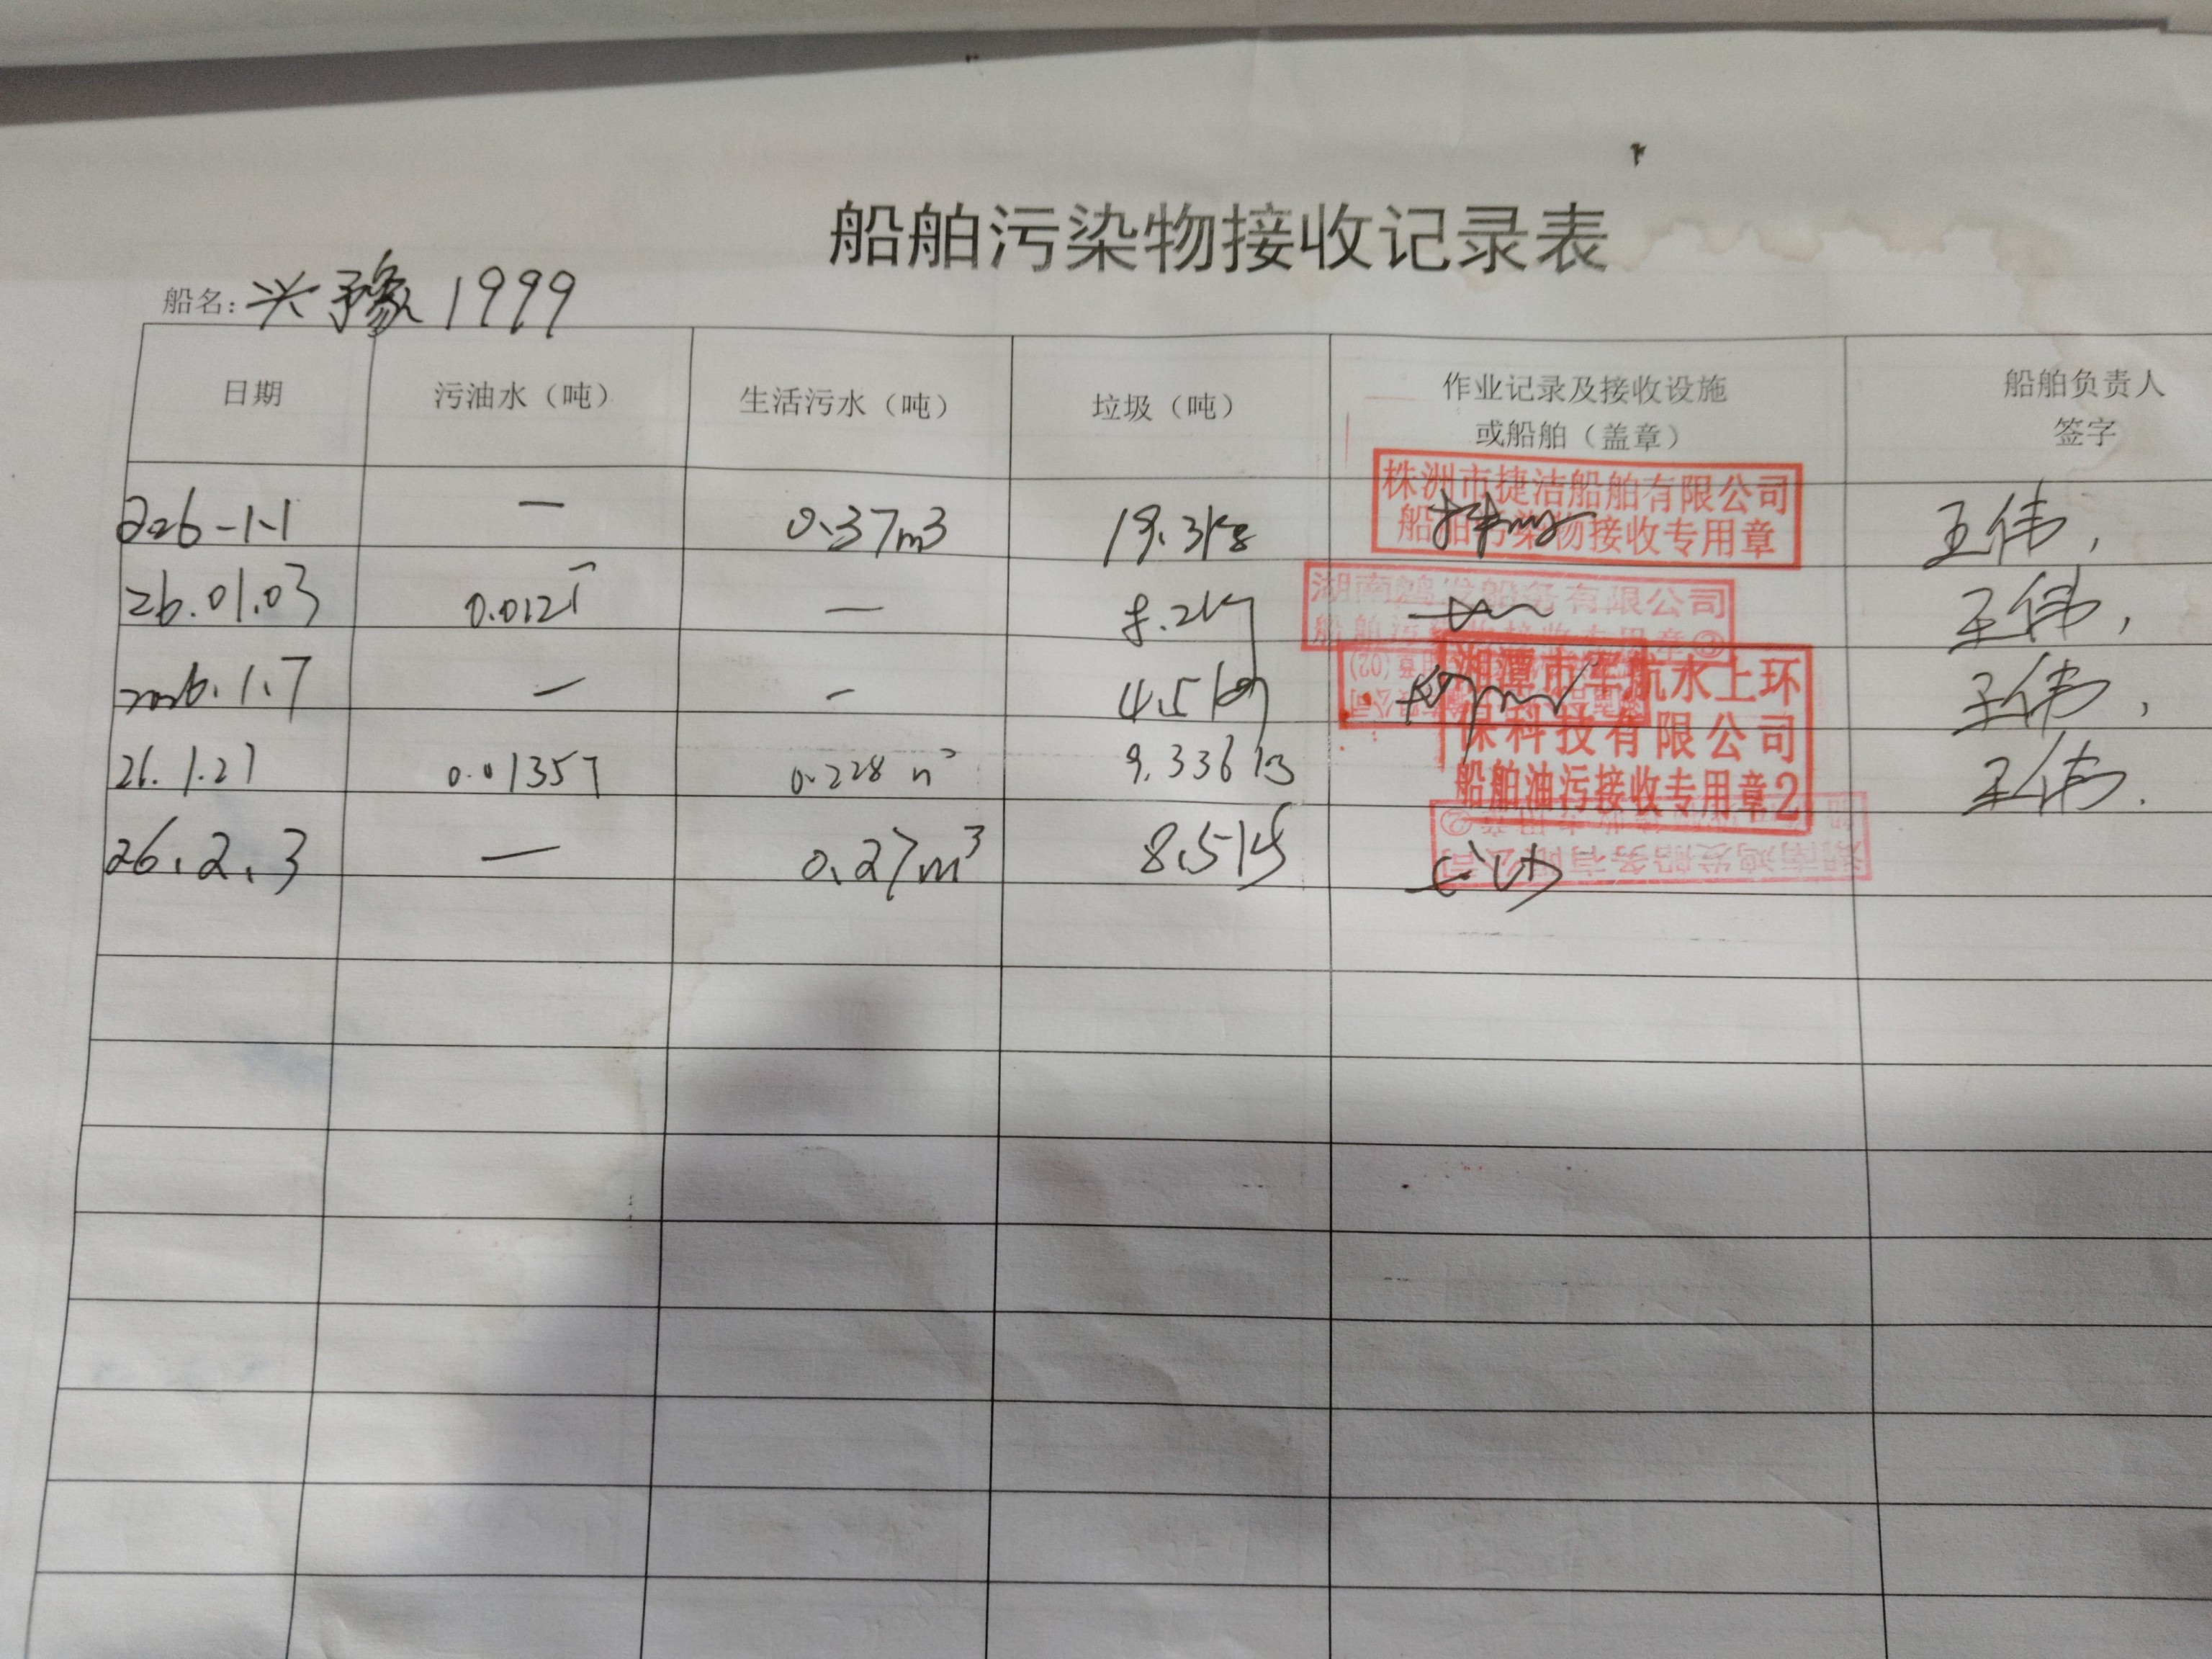 船舶污染物接收记录表
船名: 兴豫1999
日期 污油水（吨） 生活污水（吨） 垃圾（吨） 作业记录及接收设施或船舶（盖章） 船舶负责人签字
2026-1-1 — 0.37m3 19.3kg 株洲市捷洁船舶有限公司 船舶污染物接收专用章 王伟,
26.01.03 0.012T — 8.2kg 湖南鸿发船务有限公司 船舶污染物接收专用章② 王伟,
2026.1.7 — - 4.5kg 王伟,
26.1.21 0.0135T 0.228m³ 9.336kg 湘潭市军航水上环保科技有限公司 船舶油污接收专用章2 王伟.
26.2.3 — 0.27m³ 8.5kg 湖南鸿发船务有限公司 ②